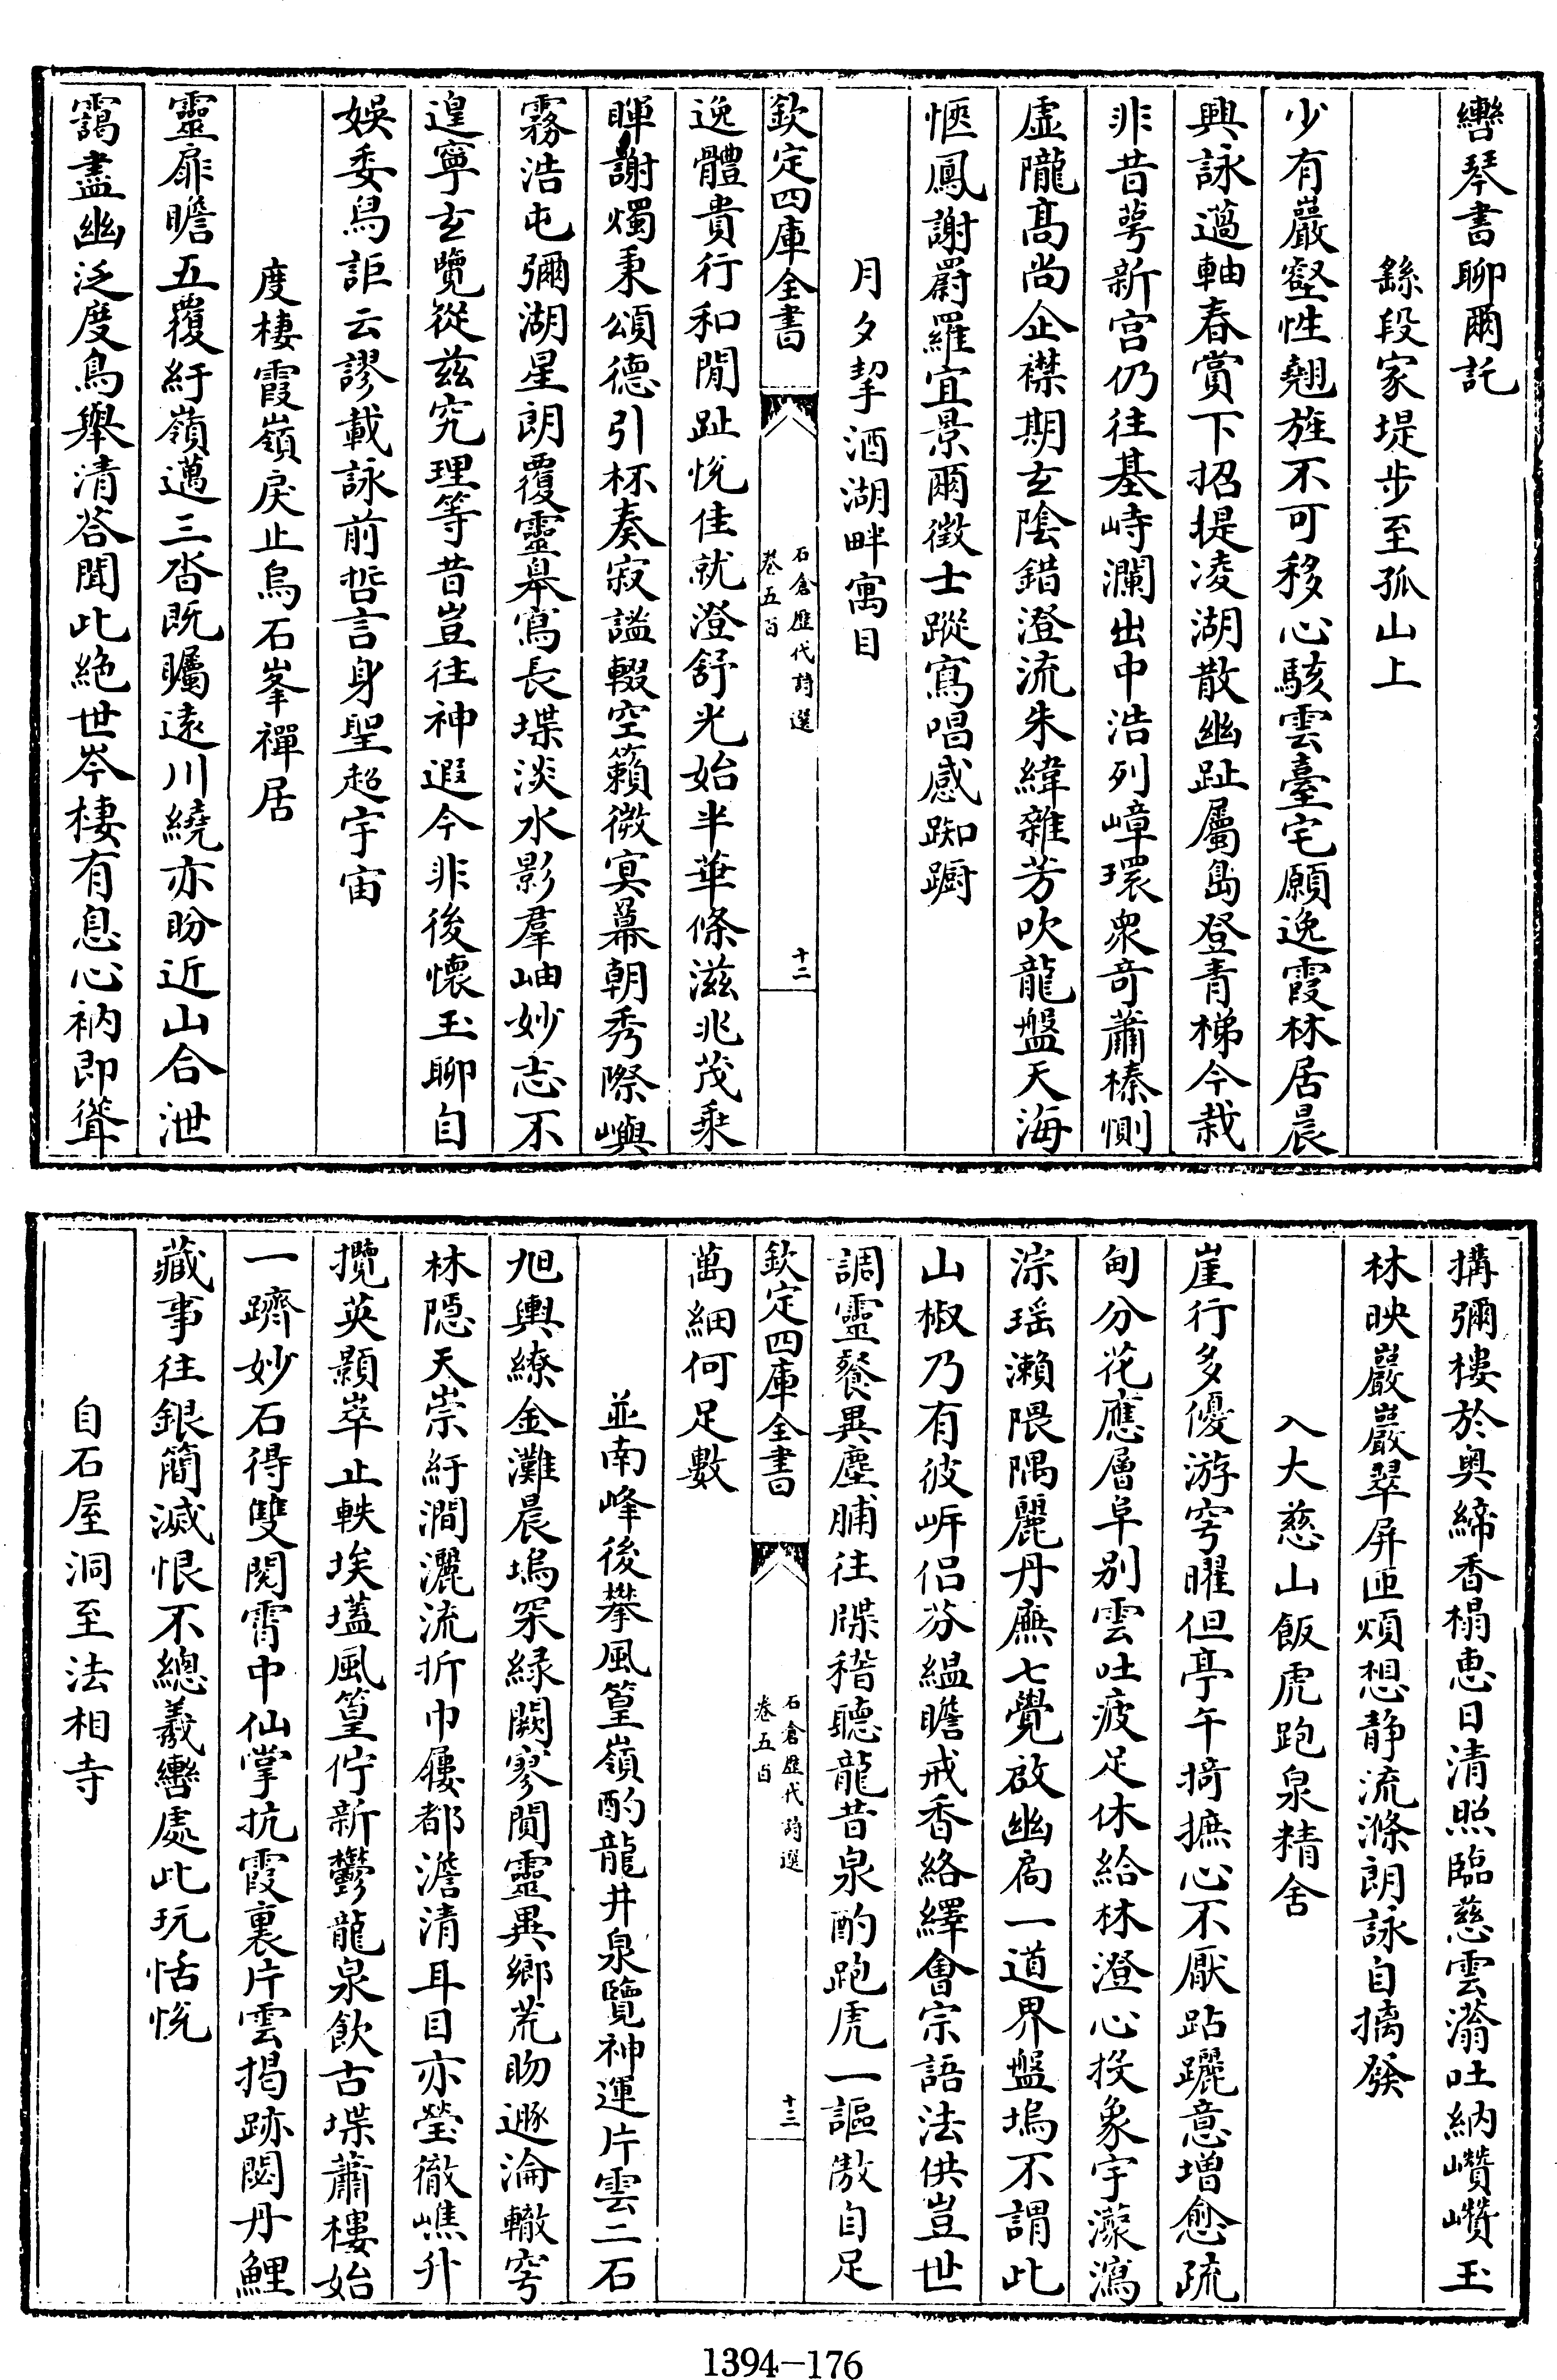 轡琴書聊爾託
繇段家堤步至孤山上
少有巖壑性翹旌不可移心駭雲臺宅願逸霞林居晨
興詠薖軸春賞下招提凌湖散幽趾屬島登青梯今栽
非昔萼新宫仍往基峙瀾出中浩列嶂環衆竒蕭榛惻
虚隴髙尚企襟期玄陰錯澄流朱緯雜芳吹龍盤天海
愜鳳謝罻羅宜景爾徵士蹤寫唱感踟蹰
月夕挈酒湖畔寓目
欽定四庫全書
石倉歴代詩選
卷五百
十二
逸體貴行和閒趾恱佳就澄舒光始半華條滋兆茂乘
暉謝燭秉頌德引杯奏寂謐輟空籟微冥幕朝秀際嶼
霧浩屯彌湖星朗覆靈皋寫長堞淡水影羣岫妙志不
遑寧玄覽從兹究理等昔豈往神遐今非後懷玉聊自
娯委舄詎云謬載詠前哲言身聖超宇宙
度棲霞嶺戾止烏石峯禪居
靈扉瞻五覆紆嶺邁三沓既矚逺川繞亦盼近山合泄
靄盡幽泛度鳥舉清荅聞此絶世岑棲有息心衲即聳
搆彌樓於奥締香榻恵日清照臨慈雲滃吐納巑巑玉
林映巖巖翠屏匝煩想静流滌朗詠自摛發
入大慈山飯虎跑泉精舍
崖行多優游穹曜但亭午掎摭心不厭跕躧意増愈疏
甸分花應層阜别雲吐疲足休給林澄心投象宇濛瀉
淙瑶瀨隈隅麗丹廡七覺啟幽扃一道界盤塢不謂此
山椒乃有彼岍侣芬緼瞻戒香絡繹會宗語法供豈世
調靈餐異塵脯往牒稽聽龍昔泉酌跑虎一謳敖自足
欽定四庫全書
石倉歴代詩選
卷五百
十三
萬細何足數
並南峰後攀風篁嶺酌龍井泉覽神運片雲二石
旭輿繚金灘晨塢罙緑闕寥閴靈異鄉荒眇遯淪轍穹
林隠天崇紆澗灑流折巾屨都澹清耳目亦瑩徹嶕升
攬英顥崒止軼埃壒風篁佇新鬱龍泉飲古堞蕭樓始
一躋妙石得雙閲霄中仙掌抗霞裏片雲揭跡閟丹鯉
藏事往銀簡滅恨不總羲轡處此玩恬恱
自石屋洞至法相寺
1394-176